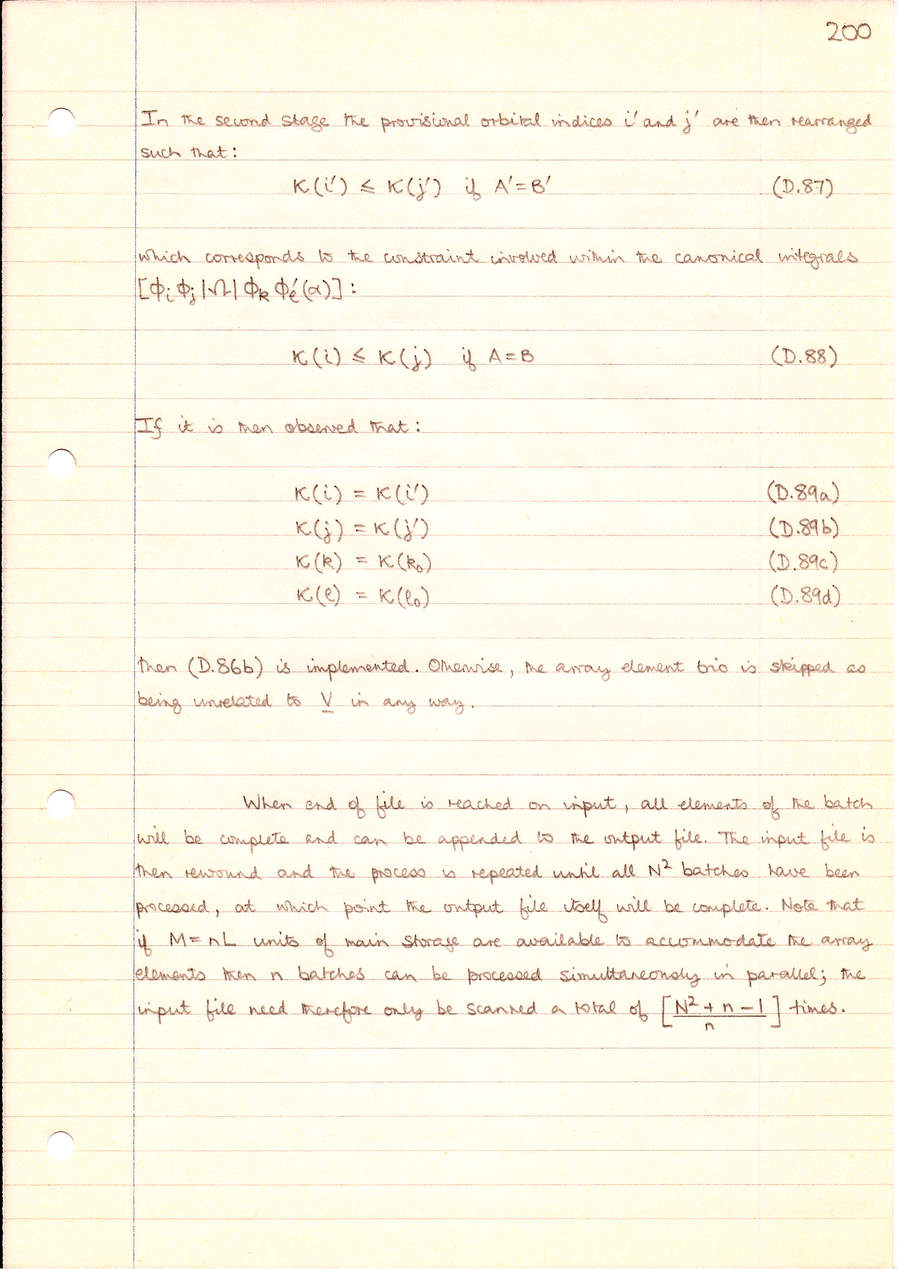 200
In the second stage the provisional orbital indices i′ and j′ are then rearranged
such that:
κ(i′) ≤ κ(j′) if A′=B′ (D.87)
which corresponds to the constraint involved within the canonical integrals
[ϕᵢ ϕⱼ |Ω| ϕₖ ϕ′ₗ(α)] :
κ(i) ≤ κ(j) if A=B (D.88)
If it is then observed that:
κ(i) = κ(i′) (D.89a)
κ(j) = κ(j′) (D.89b)
κ(k) = κ(k₀) (D.89c)
κ(ℓ) = κ(ℓ₀) (D.89d)
then (D.86b) is implemented. Otherwise, the array element trio is skipped as
being unrelated to V in any way.
When end of file is reached on input, all elements of the batch
will be complete and can be appended to the output file. The input file is
then rewound and the process is repeated until all N² batches have been
processed, at which point the output file itself will be complete. Note that
if M=nL units of main storage are available to accommodate the array
elements then n batches can be processed simultaneously in parallel; the
input file need therefore only be scanned a total of [(N² + n − 1)/n] times.